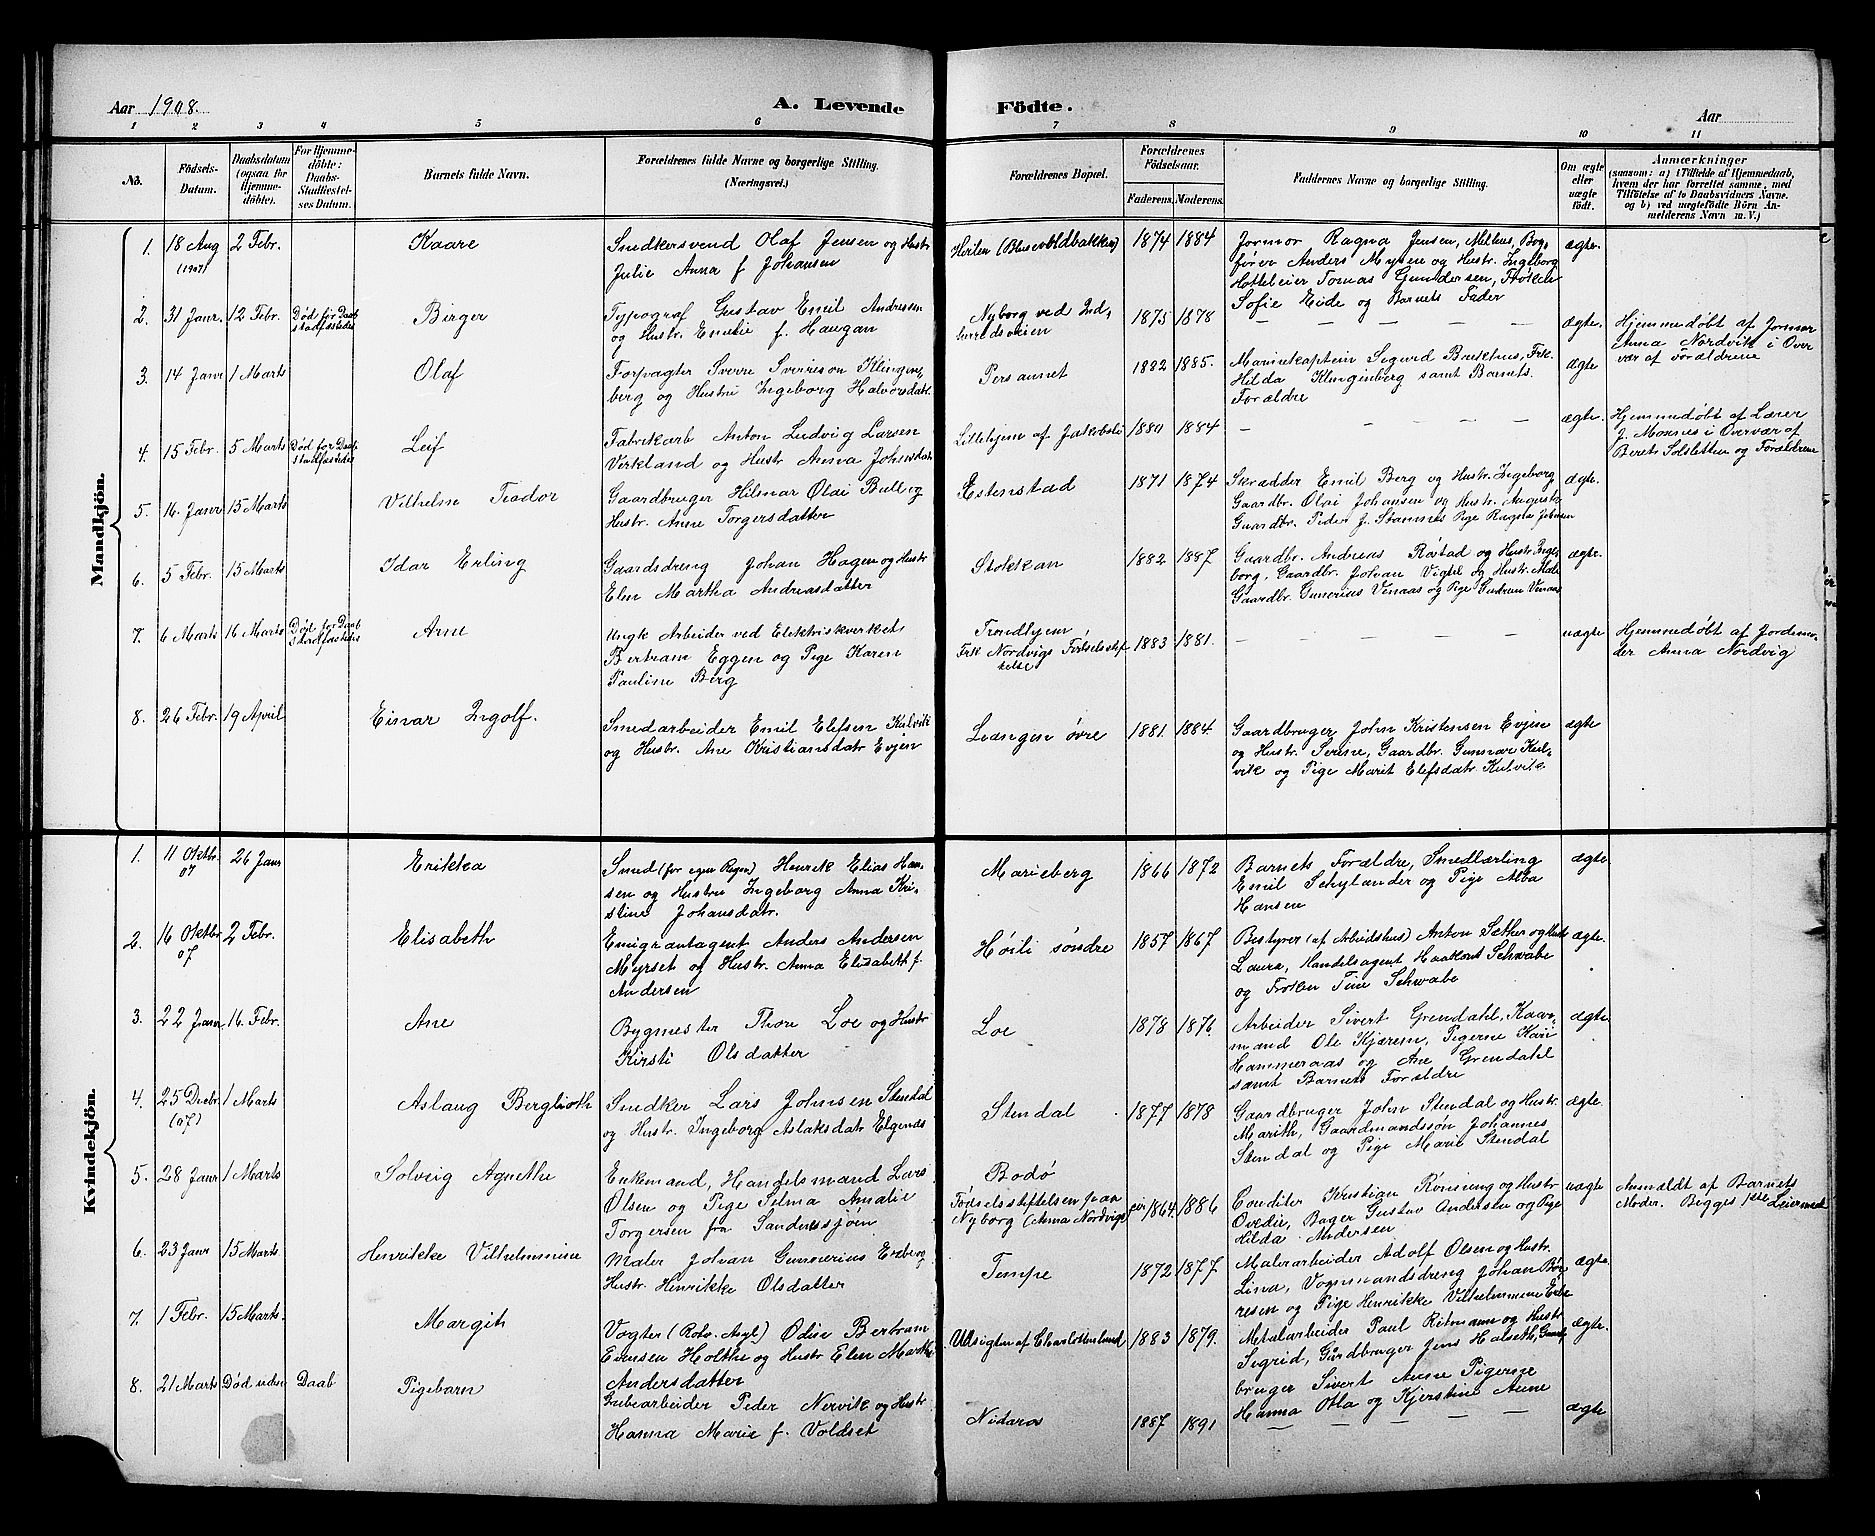 Aar 1908.
A. Levende Födte.
Aar
1 2 3 4 5 6 7 8 9 10 11
No.
Födsels-Datum.
Daabsdatum (ogsaa for Hjemmedöbte).
For Hjemmedöbte: Daabs-Stadfæstelses Datum.
Barnets fulde Navn.
Forældrenes fulde Navne og borgerlige Stilling. (Næringsvei.)
Forældrenes Bopæl.
Forældrenes Födselsaar.
Faderens. Moderens.
Faddernes Navne og borgerlige Stilling.
Om ægte eller uægte födt.
Anmærkninger
(saasom: a) i Tilfælde af Hjemmedaab, hvem der har forrettet samme, med Tilföielse af to Daabsvidners Navne. og b) ved uægtefödte Börn Anmelderens Navn m. V.)
Mandkjön.
1. 18 Aug (1907) 2 Febr. Kaare
Snedkersvend Olaf Jensen og Hustr
Julie Anna f Johansen
1874 1884
Jormor Ragna Jensen, Melhus, Bog-
fører Anders Mysen og Hustr. Ingeborg
Hotteleier Tomas Gundersen, Frøken
Sofie Eide og Barnets Fader
ægte.
2. 31 Janr. 12 Febr. Død før Daab stadfæstedes Birger
Typograf Gustav Emil Andresen
og Hustr. Emelie f. Haugan
Nyborg ved Ind-
herredsveien
1875 1878
— — — — —
ægte.
Hjemmedøbt af Jormor
Anna Nordvik i Over
vær af Forældrene
3. 14 Janr 1 Marts Olaf
Forpagter Sverre Sverreson Klingen-
berg og Hustru Ingeborg Halvorsdatr.
Persaunet
1882 1885.
Marinekaptein Sigurd Frk.
Hilda Klingenberg samt Barnets
Forældre
ægte
4. 15 Febr. 5 Marts Død før Daab stadfæstedes Leif
Fabrikarb Anton Ludvig Larsen
Virkland og Hustr Anna Johnsdatr
Littlehjem af Jakobsli
1880 1884
— — — — —
ægte.
Hjemmedøbt af Lærer
J. Monnes i Overvær af
Beret Solsletten og Forældrene
5. 16. Janr 15 Marts Vilhelm Teodor
Gaardbruger Hilmar Olai Bull og
Hustr. Anne Torgersdatter
Estenstad
1871 1874
Skrædder Emil Berg og Hustr. Ingeborg
Gaardbr. Olai Johansen og Hustr. August
Gaardbr. Peder J. Stamnes Pige Ragna
ægte.
6. 5 Febr. 15 Marts Idar Erling
Gaardsdreng Johan Hagen og Hustr
Elen Martha Andreasdatter
Stokkan
1882 1887
Gaardbr. Andreas Røstad og Hustr. Inge-
borg, Gaardbr. Johan Vigtel og Hustr. Male
Gaardbr. Gunerius Venaas og Pige Gudrun Venaas
ægte.
7. 6 Marts 16 Marts Død før Daab stadfæstedes Arne
Ungk Arbeider ved Elektriskverket
Bertram Eggen og Pige Karen
Pauline Berg
Trondhjem
Frk Nordvigs Fødselsstif
telse
1883 1881.
— — — — —
uægte
Hjemmedøbt af Jordemo-
der Anna Nordvig
8. 26 Febr. 19 April Einar Ingolf.
Smedarbeider Emil Elefsen Kulvik
og Hustr. Ane Kristiansdatr Evjen
Leangen øvre
1881. 1884
Gaardbruger John Kristensen Evjen
og Hustr. Serine, Gaardbr. Gunnar Kul-
vik og Pige Marit Elefsdatr. Kulvik
ægte
Kvindekjön.
1. 11 Oktbr. 07 26 Janr Erikka
Smed (for egen Regn) Henrik Elias Han-
sen og Hustru Ingeborg Anna Kri-
stine Johansdatr.
Marieberg
1866 1872
Barnets Forældre, Smedlærling
Emil Schylander og Pige Alba
Hansen
ægte
2. 16 Oktbr 07 2 Febr. Elisabeth
Emigrantagent Anders Andersen
Myrset og Hustr. Anna Elisabeth f.
Andersen
Høili søndre
1857 1867
Bestyrer (af Arbeidshus) Anton Sæther og Hustr
Laura, Handelsagent Haakon Schwabe
og Frøken Tine Schwabe
ægte.
3. 22 Janr 16. Febr. Ane
Bygmester Thore Loe og Hustr
Kirsti Olsdatter
Loe
1878 1876.
Arbeider Sivert Grendahl, Kaar-
mand Ole Kjærem, Pigerne Kari
Hammeraas og Ane Grendahl
samt Barnets Forældre
ægte
4. 25 Decbr (07) 1 Marts Aslaug Berglioth
Snedker Lars Johnsen Stendal
og Hustr. Ingeborg Aslaksdatr Elgenæs
Stendal
1877 1878
Gaardbruger John Stendal og Hustr.
Marith, Gaardmandssøn Johannes
Stendal og Pige Marie Stendal
ægte.
5. 28 Janr 1 Marts Solveig Agnethe
Enkemand, Handelsmand Lars
Olsen og Pige Selma Amalie
Torgersen fra Sandnessjøen
Bodø
Fødselsstiftelsen paa
Nyborg (Anna Nordvigs)
1864. 1886
Conditor Kristian Rønning og Hustr
Ovedie, Bager Gustav Andersen og Pige
Hilda Andersen
uægte
Anmeldt af Barnets
Moder. Bigges 1ste Leiermaal
6. 23 Janr 15 Marts Henrikke Vilhelmmine
Maler Johan Gunnerius og
Hustr. Henrikke Olsdatter
Tempe
1872 1877
Malerarbeider Adolf Olsen og Hustr.
Lina, Vognmandsdreng Johan Bør-
resen og Pige Henrikke Vilhelmmine
ægte.
7. 1 Febr. 15 Marts. Margith
Vogter (Rotv. Asyl) Odin Bertram
Evensen Holthe og Hustr Elen Marthe
Andersdatter
Udsigten af Charlottenlund
1883 1879.
Metalarbeider Paul Ritmann og Hustr
Sigrid, Gårdbruger Jens Halseth, Gaard-
bruger Sivert Aune Pigerne
Hanna Otla og Kjerstine Aune
ægte.
8. 21 Marts Død uden Daab Pigebarn
Gubearbeider Peder Nervik og Hustr
Hanna Marie f. Voldset
Nidarø
1887 1891
— — — — —
ægte